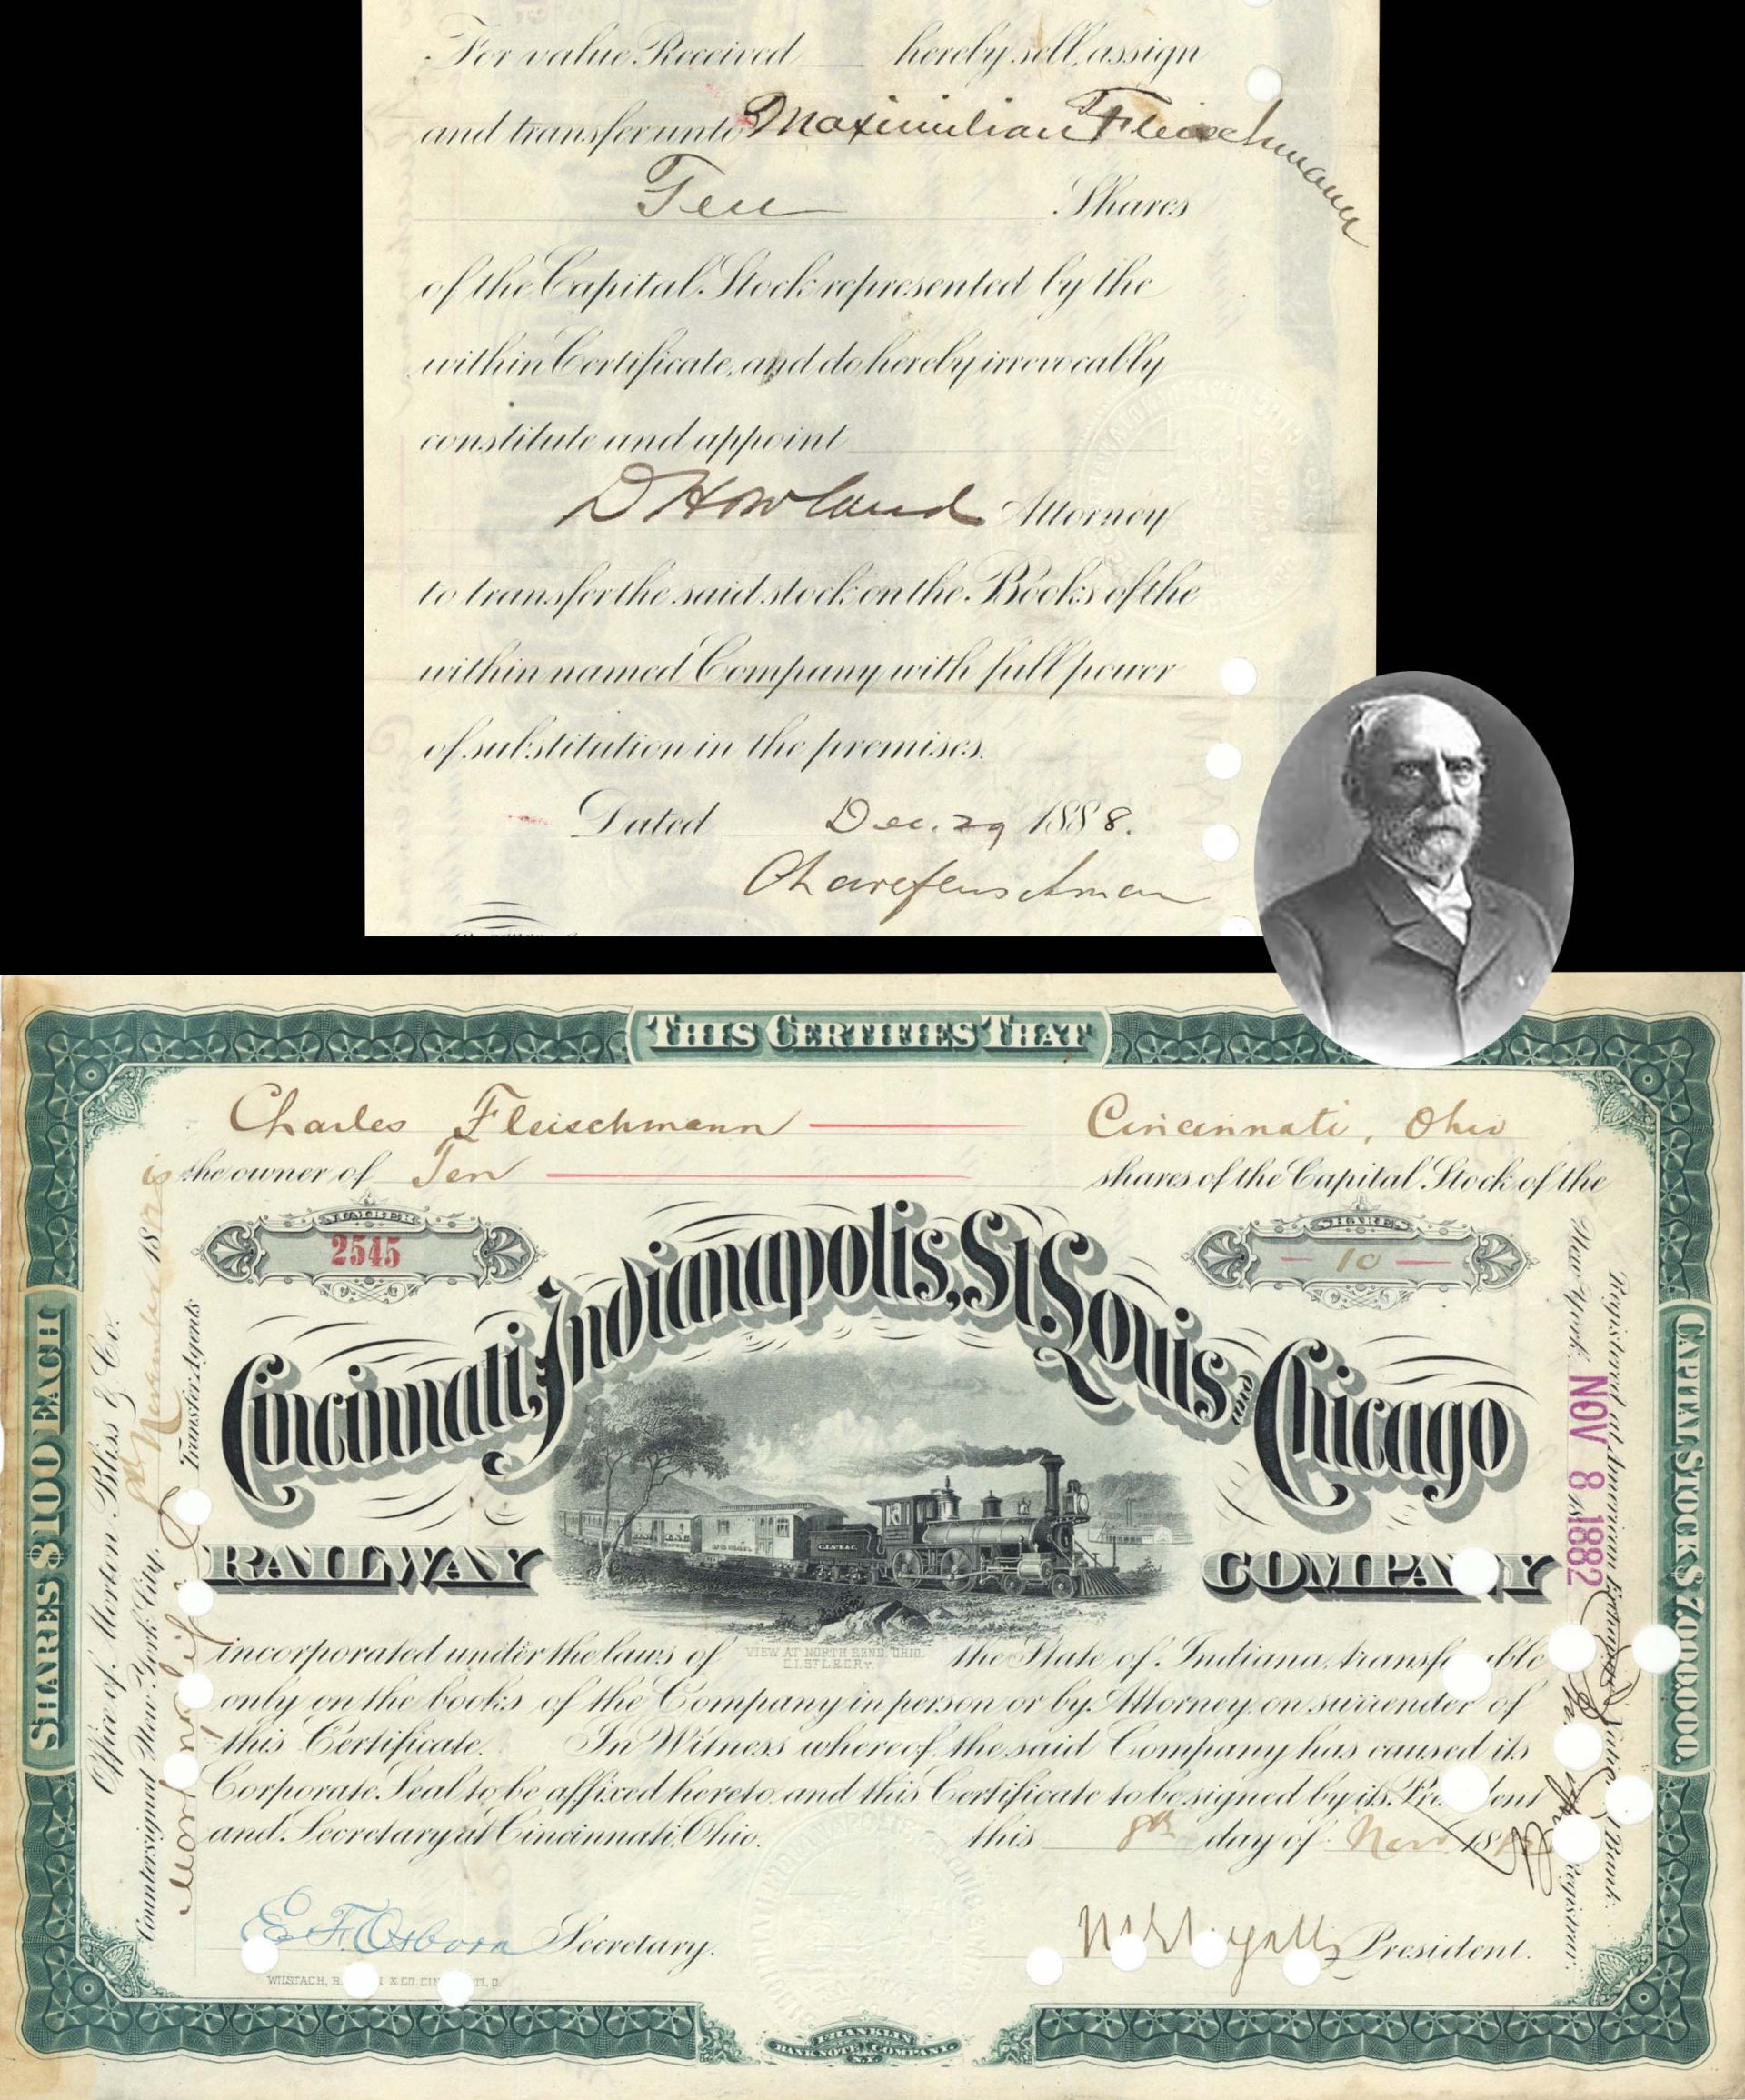 For value Received hereby sell, assign
and transfer unto Maximilian Fleischmann
Ten Shares
of the Capital Stock represented by the
within Certificate, and do hereby irrevocably
constitute and appoint
D Howland Attorney
to transfer the said stock on the Books of the
within named Company with full power
of substitution in the premises.
Dated Dec. 29 1888.
THIS CERTIFIES THAT
Charles Fleischmann Cincinnati, Ohio
is the owner of Ten shares of the Capital Stock of the
NUMBER
2545
SHARES
10
Cincinnati, Indianapolis, St. Louis and Chicago
RAILWAY COMPANY
C.I.ST.L.& C.
U.S. MAIL
VIEW AT NORTH BEND, OHIO.
C.I.ST L.& C.RY
incorporated under the laws of the State of Indiana, transferable
only on the books of the Company in person or by Attorney on surrender of
this Certificate. In Witness whereof, the said Company has caused its
Corporate Seal to be affixed hereto and this Certificate to be signed by its President
and Secretary at Cincinnati, Ohio. this 8th day of Nov 18
E. F. Osborn Secretary.
President.
WILSTACH, & CO. CIN TI, O.
FRANKLIN
BANK NOTE COMPANY
N.Y.
SHARES $100 EACH
Office of Morton Bliss & Co.
Countersigned New York City.
November 18
Transfer Agents
CAPITAL STOCK $7,000,000.
Registered at American Exchange National Bank.
New York, NOV 8 1882
Registrar.